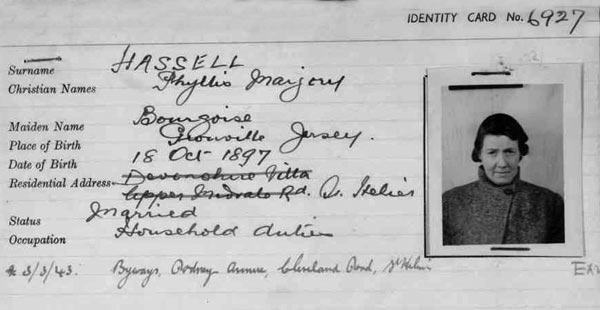 IDENTITY CARD No. 6927
Surname HASSELL
Christian Names Phyllis Marjory
Maiden Name Bourgoise
Place of Birth Grouville Jersey.
Date of Birth 18 Oct 1897
Residential Address Devonshire Villa
Upper Midvale Rd. St. Helier
Status Married
Occupation Household duties
3/3/43. Byways, Rodney Avenue, Cleveland Road, St Helier